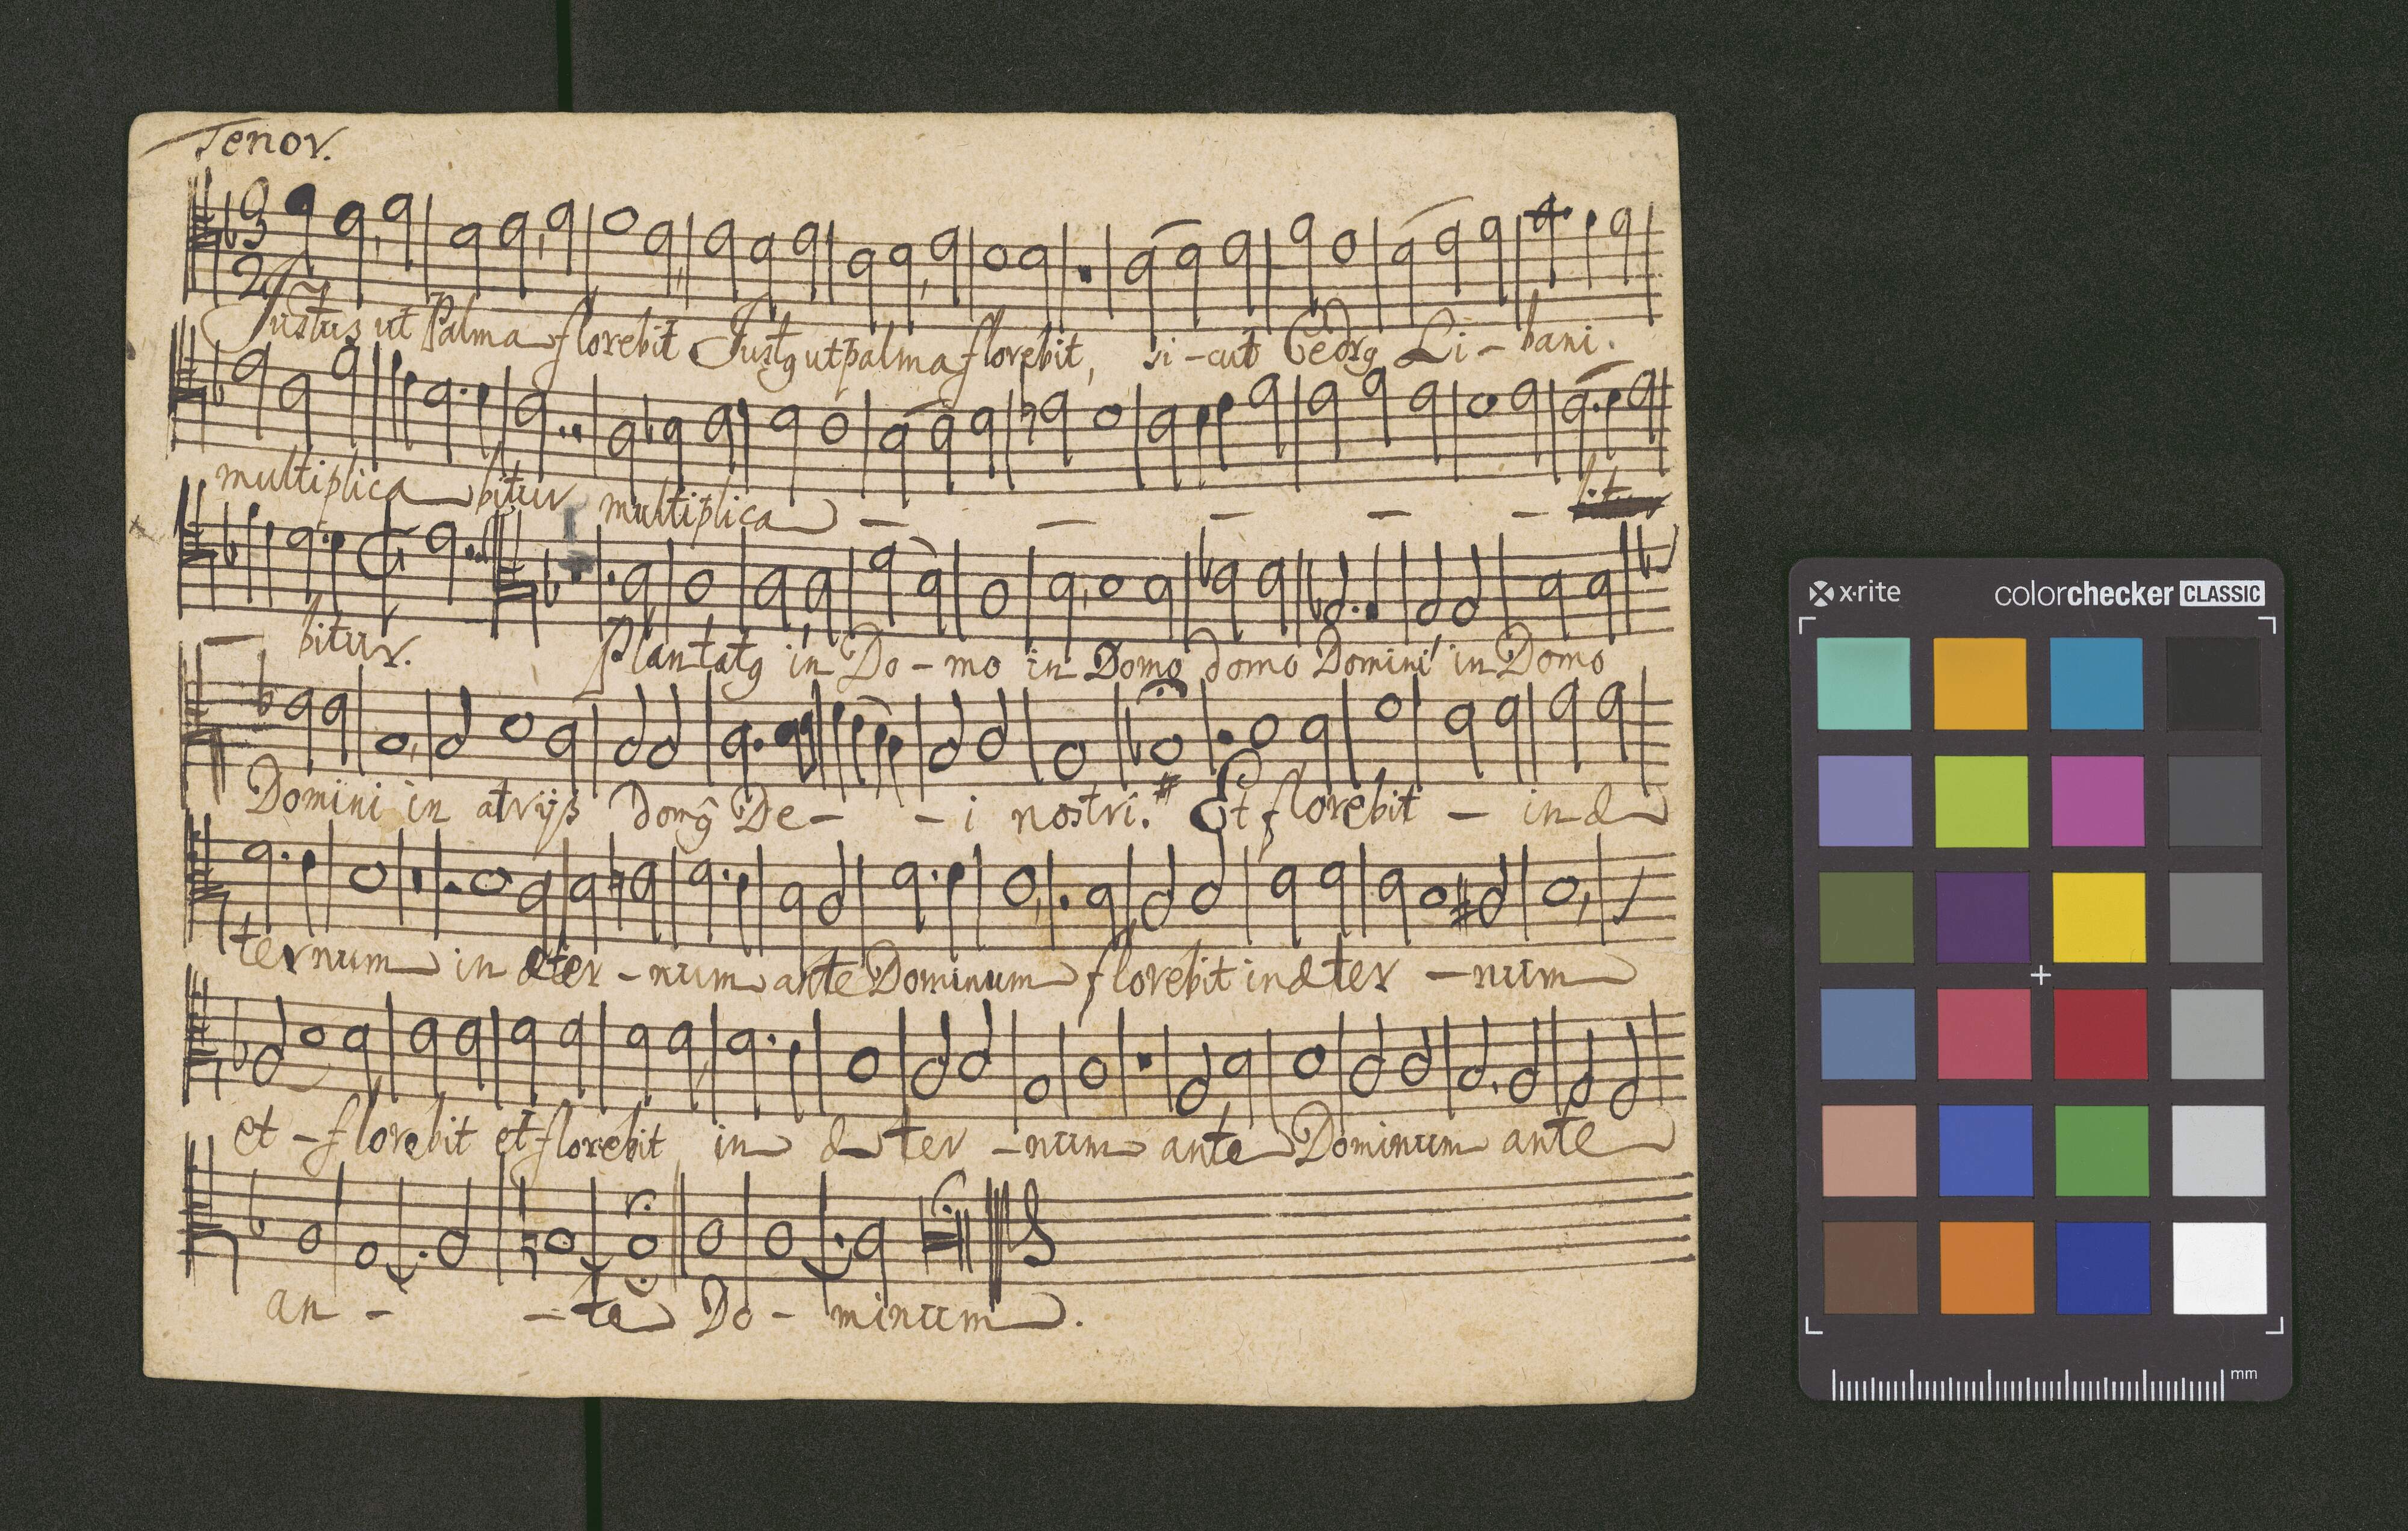 Tenor.
3
2
Justus ut Palma florebit Justꝯ ut palma florebit, si - cut Cedrꝯ Li - bani.
multiplica bitur multiplica - - - - - bitur
- bitur. Plantatꝯ in Do - mo in Domo domo Domini in Domo
Domini in atrijs Domꝯ De - - i nostri. Et florebit - in æ
ternum in æter - num ante Dominum florebit in æter - num
et - florebit et florebit in æ ter - num ante Dominum ante
an - - te Do - minum.
x·rite colorchecker CLASSIC
mm